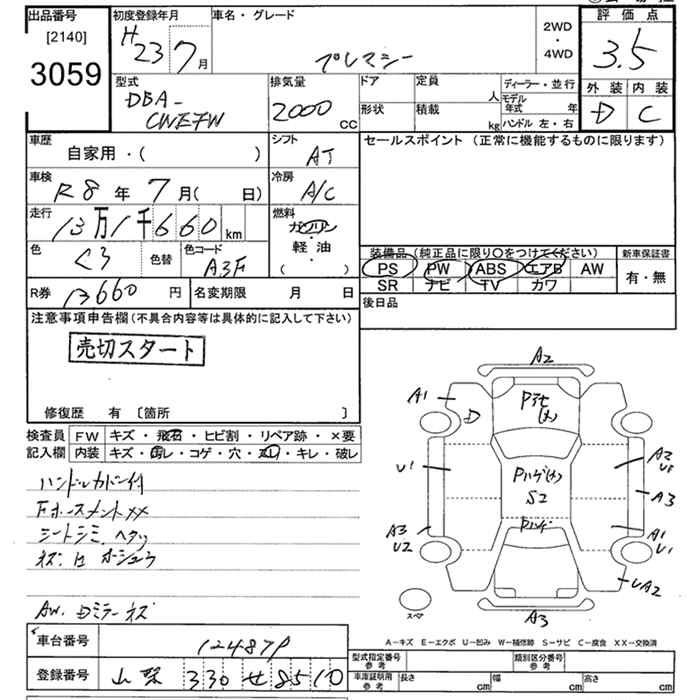 出品番号
[2140]
3059
初度登録年月
H 23 7 月
車名・グレード
プレマシー
2WD
・
4WD
評価点
3.5
外装 内装
D C
型式
DBA-
CWEFW
排気量
2000 cc
ドア
形状
定員 人
積載 kg
ディーラー・並行
モデル年式 年
ハンドル 左・右
車歴
自家用・( )
シフト
AT
セールスポイント (正常に機能するものに限ります)
車検
R8 年 7 月( 日)
冷房
A/C
走行
13万1千660 km
燃料
ガソリン
軽・油
( )
色
クロ
色替
色コード
A3F
装備品 (純正品に限り○をつけてください)
PS PW ABS エアB AW
SR ナビ TV カワ
新車保証書
有・無
R券 13660 円
名変期限 月 日
後日品
注意事項申告欄 (不具合内容等は具体的に記入して下さい)
売切スタート
修復歴 有 [箇所 ]
検査員
記入欄
FW キズ・飛石・ヒビ割・リペア跡・×要
内装 キズ・汚レ・コゲ・穴・スレ・キレ・破レ
ハンドルカバー付
シートシミ ヘタリ
AW. Dミラーキズ
A2
A1
D
U1
A2
A3
S2
A3
U2
A1
U1
UA2
A3
スペア
A-キズ E-エクボ U-凹み W-補修跡 S-サビ C-腐食 XX-交換済
車台番号
124879
登録番号
山梨 330 せ 8510
型式指定番号
参考
類別区分番号
参考
車庫証明用
参考
長さ cm
幅 cm
高さ cm